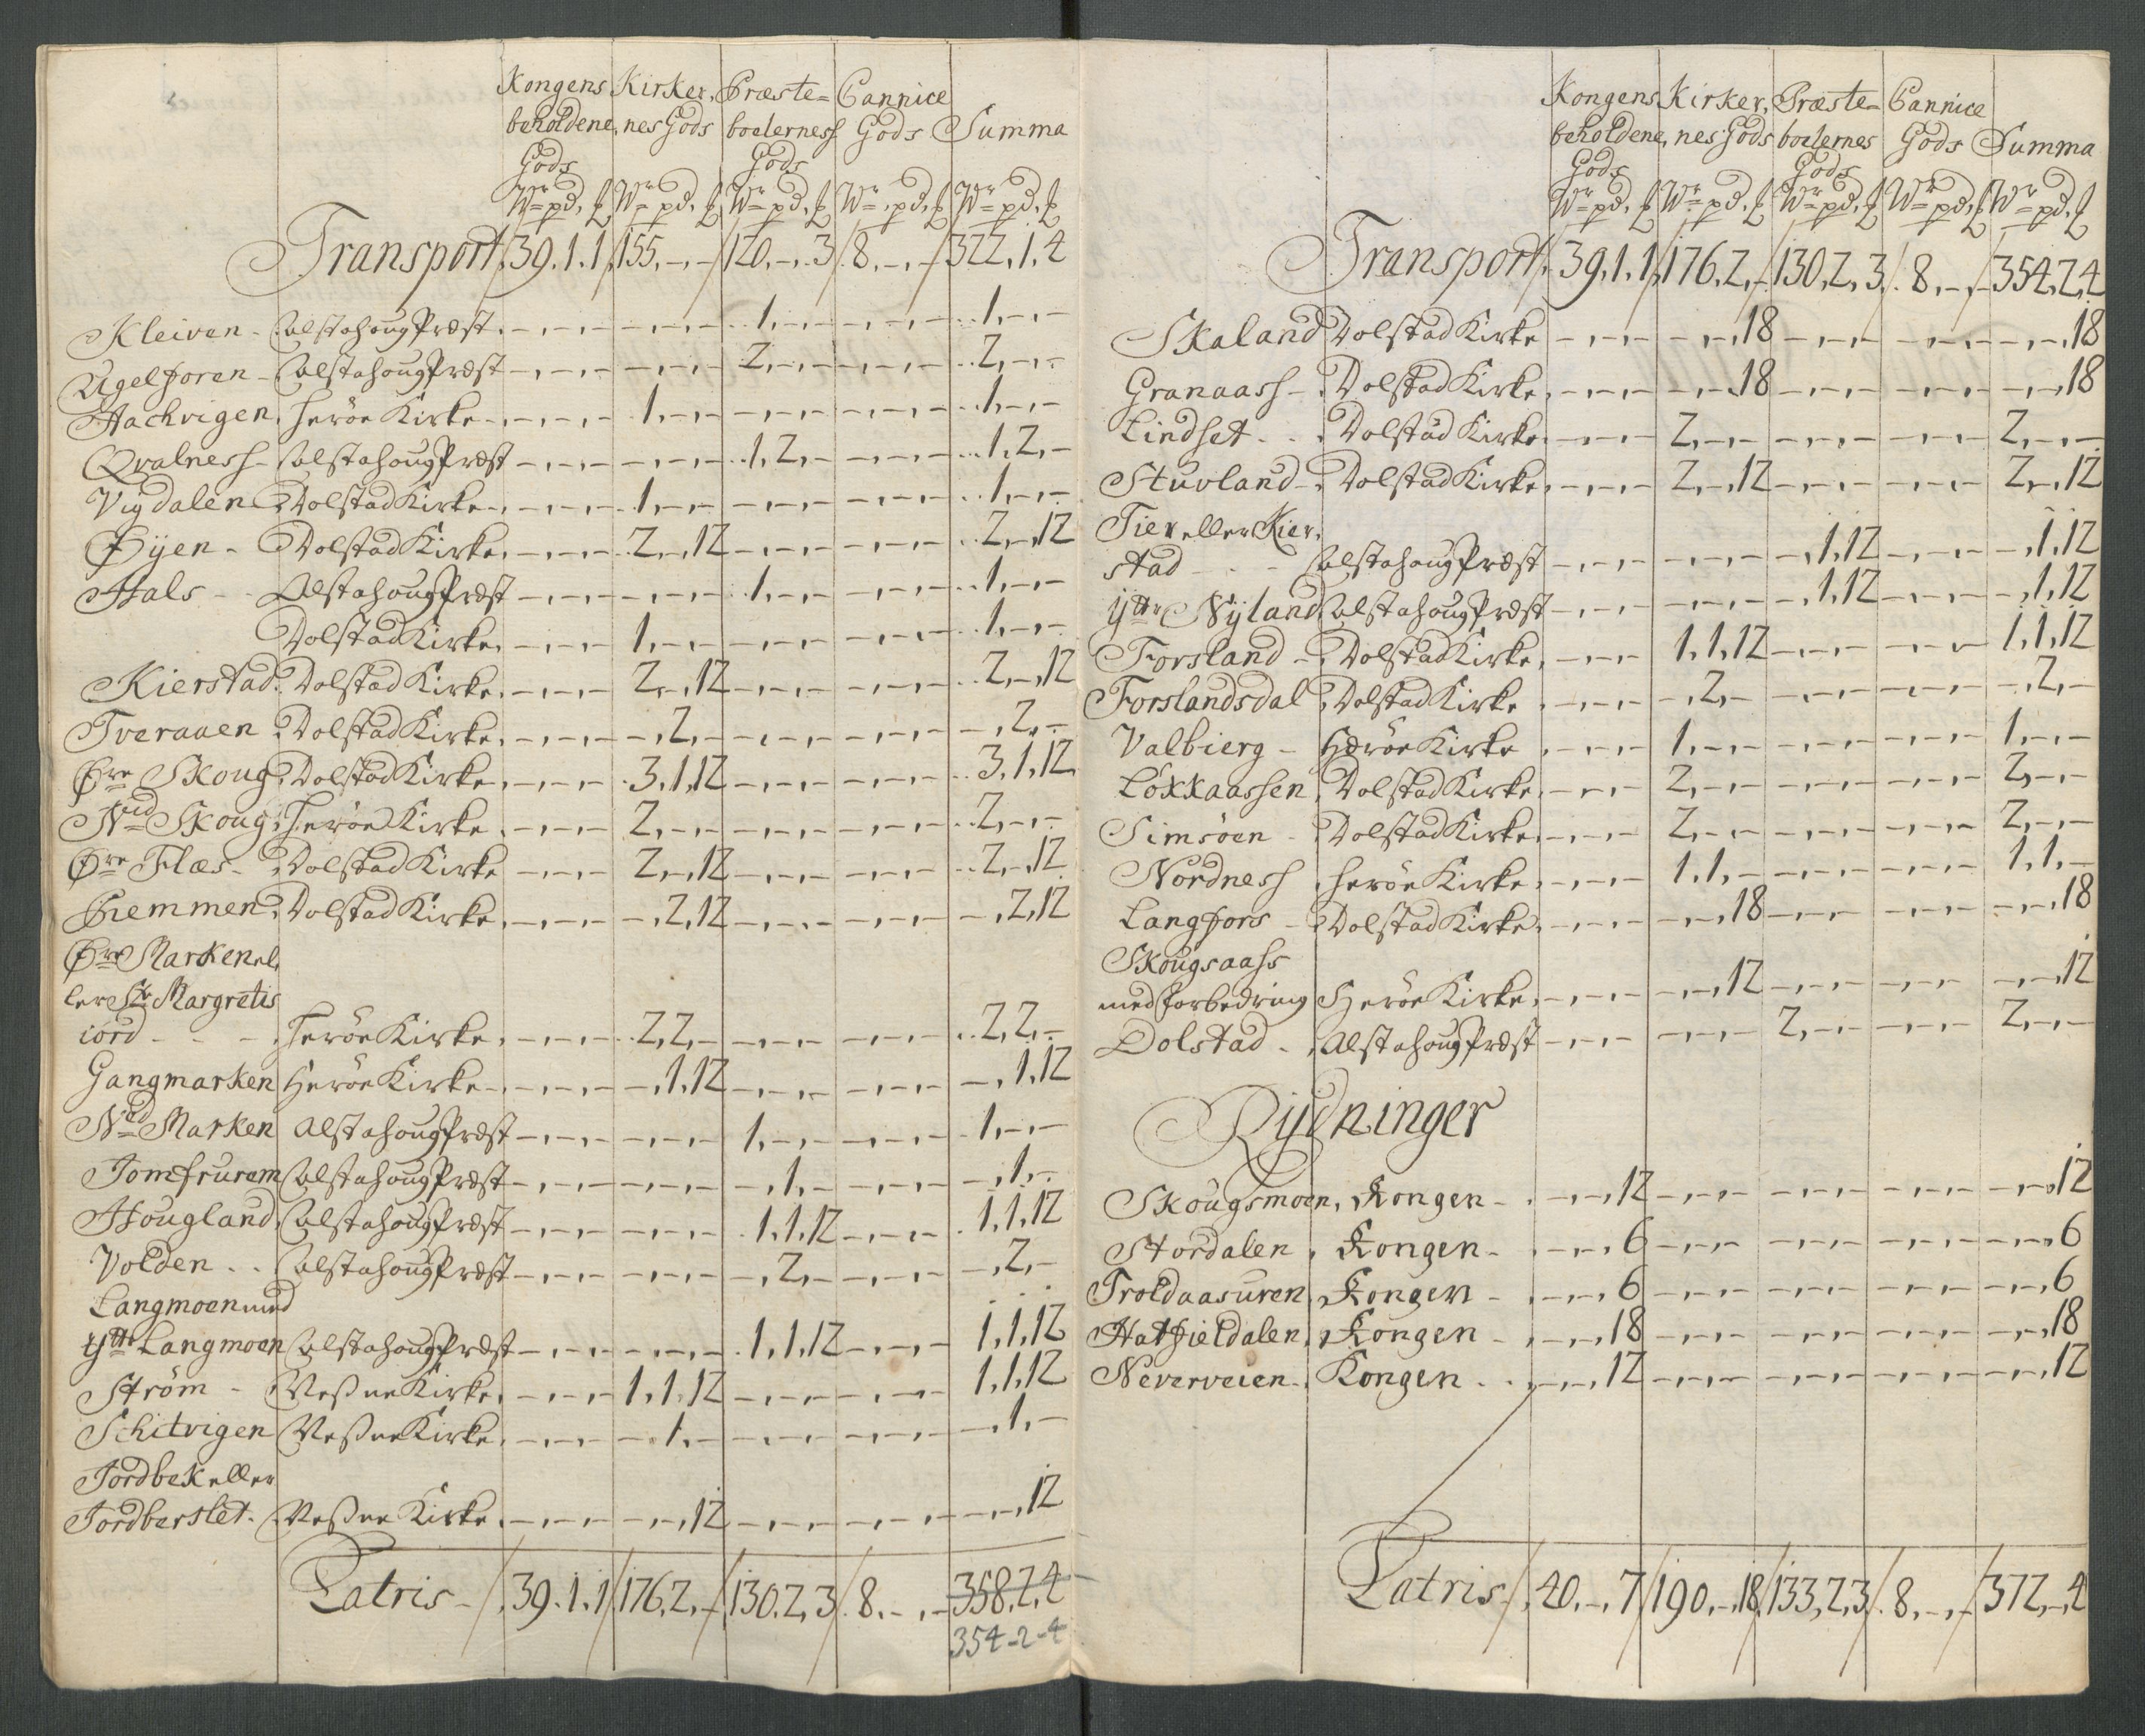 Kongens Kirker, Præste= Cannice
beholdene, nes Gods boelerness Gods Summa
Gods Gods
Wr pd, ℔ Wr pd, ℔ Wr pd, ℔ Wr pd, ℔ Wr pd, ℔
Transport 39.1.1 155.-.- 120.-.3 8.-.- 322.1.4
Kleiven - Alstahoug Præst -,-,- -,-,- 1,-,- -,-,- 1,-,-
Ugelforen - Alstahoug Præst -,-,- -,-,- 2,-,- -,-,- 2,-,-
Hachvigen, Herøe Kirke -,-,- 1,-,- -,-,- -,-,- 1,-,-
Qvalness - Alstahoug Præst -,-,- -,-,- 1,2,- -,-,- 1,2,-
Vigdalen Dolstad Kirke -,-,- 1,-,- -,-,- -,-,- 1,-,-
Øyen - Dolstad Kirke, -,-,- 2,-,12 -,-,- -,-,- 2,-,12
Hals - Alstahoug Præst -,-,- -,-,- 1,-,- -,-,- 1,-,-
Dolstad Kirke, -,-,- 1,-,- -,-,- -,-,- 1,-,-
Kierstad. Dolstad Kirke, -,-,- 2,-,12 -,-,- -,-,- 2,-,12
Tveraaen Dolstad Kirke, -,-,- -,2,- -,-,- -,-,- -,2,-
Øre Skoug Dolstad Kirke, -,-,- 3,1,12 -,-,- -,-,- 3,1,12
Ned Skoug, Herøe Kirke -,-,- 2,-,- -,-,- -,-,- 2,-,-
Øre Flæs - Dolstad Kirke -,-,- 2,-,12 -,-,- -,-,- 2,-,12
Fremmen Dolstad Kirke, -,-,- -,2,12 -,-,- -,-,- -,2,12
Øre Marken el,
ler Ste Margretis
iord - - - Herøe Kirke, -,-,- 2,2,- -,-,- -,-,- 2,2,-
Gangmarken Herøe Kirke -,-,- -,1,12 -,-,- -,-,- -,1,12
Ned Marken Alstahoug Præst -,-,- -,-,- 1,-,- -,-,- 1,-,-
Jomfrurem Alstahoug Præst -,-,- -,-,- -,1,- -,-,- -,1,-
Hougland, Alstahoug Præst -,-,- -,-,- 1,1,12 -,-,- 1,1,12
Volden - - Alstahoug Præst -,-,- -,-,- -,2,- -,-,- -,2,-
Langmoen med
Ytt Langmoen Alstahoug Præst -,-,- -,-,- 1,1,12 -,-,- 1,1,12
Strøm - Veßne Kirke, -,-,- 1,1,12 -,-,- -,-,- 1,1,12
Schitvigen Veßne Kirke, -,-,- -,1,- -,-,- -,-,- -,1,-
Jordbek eller
Jordberslet - Veßne Kirke, -,-,- -,-,12 -,-,- -,-,- -,-,12
Latris - 39.1.1 176.2,- 130.2,3 8.-,- 358.2,4
354-2-4
Kongens Kirker, Præste- Cannice
beholdene, nes Gods boelernes Gods Summa
Gods Gods
Wr pd, ℔ Wr pd, ℔ Wr pd, ℔ Wr pd, ℔ Wr pd, ℔
Transport, 39,1,1 176,2,- 130,2,3 8,-,- 354,2,4
Skaland Dolstad Kirke -,-,- -,-,18 -,-,- -,-,- -,-,18
Granaass - Dolstad Kirke, -,-,- -,-,18 -,-,- -,-,- -,-,18
Lindset - - Dolstad Kirke, -,-,- 2,-,- -,-,- -,-,- 2,-,-
Stuvland - Dolstad Kirke, -,-,- 2,-,12 -,-,- -,-,- 2,-,12
Tier eller Kier,
stad - - - Alstahoug Præst -,-,- -,-,- -,1,12 -,-,- -,1,12
Yttr Nyland Alstahoug Præst -,-,- -,-,- -,1,12 -,-,- -,1,12
Forsland - Dolstad Kirke, -,-,- 1,1,12 -,-,- -,-,- 1,1,12
Forslandsdal Dolstad Kirke -,-,- -,2,- -,-,- -,-,- -,2,-
Valbierg - Herøe Kirke -,-,- 1,-,- -,-,- -,-,- 1,-,-
Løkkaassen Dolstad Kirke, -,-,- 2,-,- -,-,- -,-,- 2,-,-
Simsøen - Dolstad Kirke, -,-,- 2,-,- -,-,- -,-,- 2,-,-
Nordness Herøe Kirke, -,-,- 1,1,- -,-,- -,-,- 1,1,-
Langfors - Dolstad Kirke, -,-,- -,-,18 -,-,- -,-,- -,-,18
Skougsaass
med forbedring Herøe Kirke, -,-,- -,-,12 -,-,- -,-,- -,-,12
Dolstad - Alstahoug Præst -,-,- -,-,- 2,-,- -,-,- 2,-,-
Rydninger
Skougsmoen, Kongen - -,-,12 -,-,- -,-,- -,-,- -,-,12
Stordalen, Kongen - -,-,6 -,-,- -,-,- -,-,- -,-,6
Troldaasuren, Kongen - -,-,6 -,-,- -,-,- -,-,- -,-,6
Hatfieldalen, Kongen - -,-,18 -,-,- -,-,- -,-,- -,-,18
Neverveien - Kongen - - -,-,12 -,-,- -,-,- -,-,- -,-,12
Latris - 40,-,7 190,-,18 133,2,3 8,-,- 372,-,4